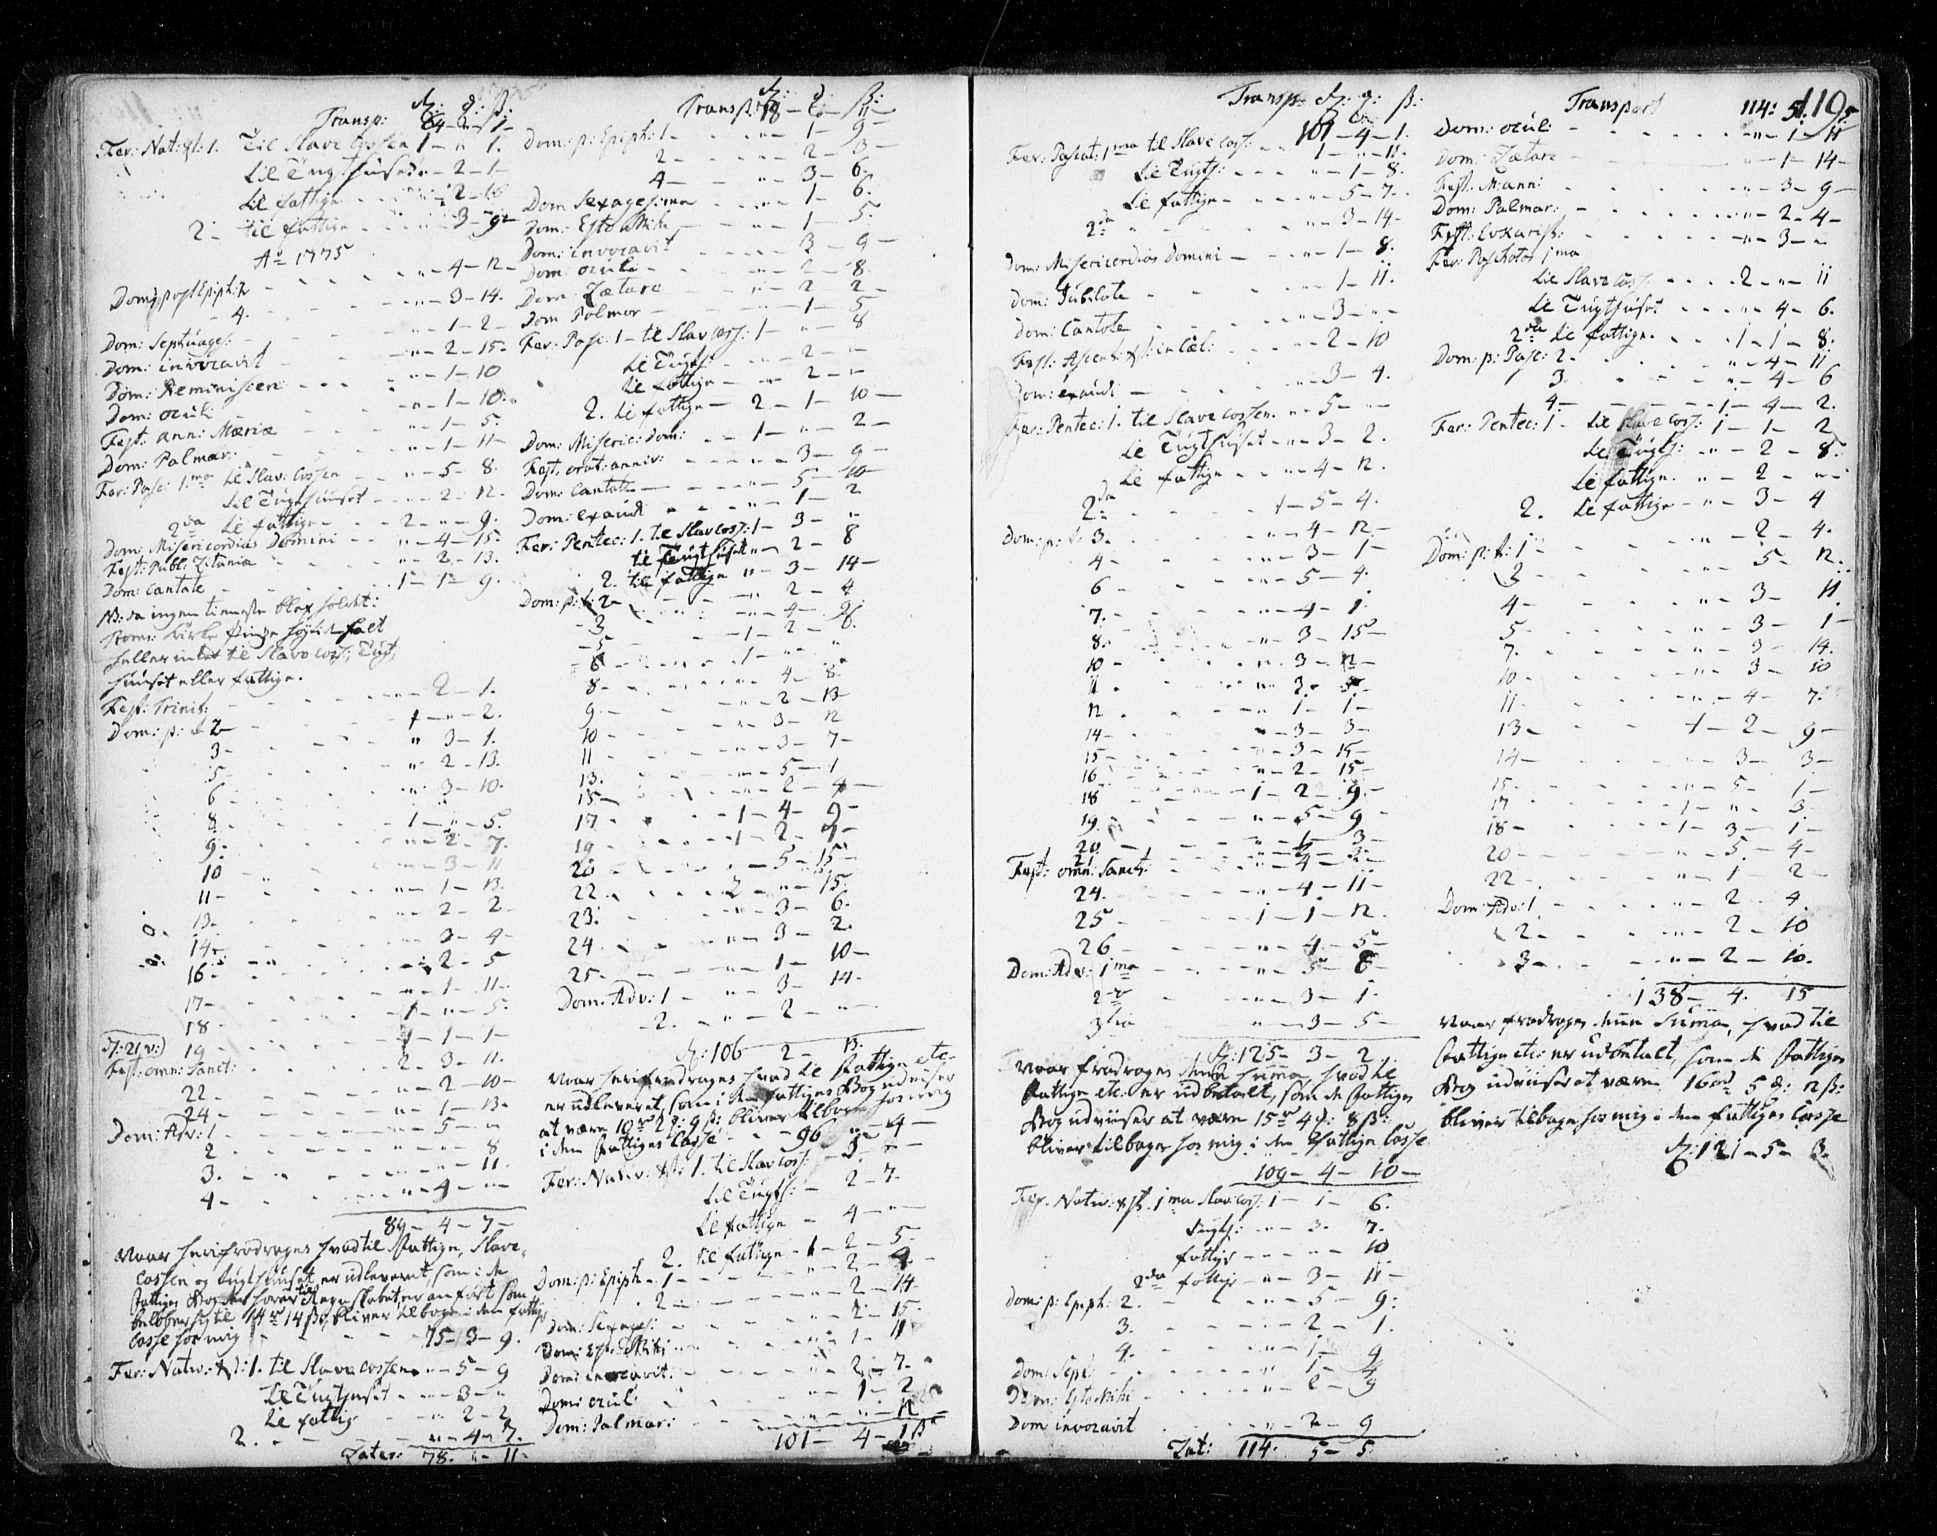 Transp: 64 - 2 - 1 -
Fer: Nat: xt: 1. Til Slave Cossen 1 - " 1.
til Tugthuset - 2 - 1 -
til fattige - - " - 2 - 10
2 - til fattige - - " - 3 - 9 -
Ao 1775
Dom: post Epiph: 2 - - " - 4 - 12 -
- 4. - - " - 3 - 14.
Dom: Septuages: - - " - 1 - 2 -
Dom: invocavit - - " - 2 - 15.
Dom: Reminiscere - - " - 1 - 10
Dom: oculi - - " - 1 - 10.
Fest: ann: Mariæ - - " - 1 - 5.
Dom: Palmar: - - " - 1 - 11 -
Fer: Pasc: 1.ma til Slav: Cossen - " - 5 - 8.
til Tugthuuset - - " - 2 - 12.
2da til fattige - - 2 - " - 9.
Dom: Misericordias Domini - - " - 4 - 15.
Fest: Publ: Litaniæ - - " - 2 - 13.
Dom: Cantate - - 1 - 1 - 9.
NB: da ingen tieneste blev holdt i
Kirke Pindse høytid falt
heller intet til Slave Coss; Tugt,
huuset eller fattige.
Fest: Trinit: - - " - 2 - 1.
Dom: p: t: 2 - - 1 - " - 2.
3 - - " 3 - 1.
5 - - " 2 - 13.
6 - - " 3 - 10.
8 - - 1 - " - 5.
9. - - " 2 - 7.
10 - - " - 3 - 11
11 - - " - 1 - 13.
13. - - " - 2 - 2.
14. - - " - 3 - 4 -
16 - - " - 2 - 5
17 - - " - 1 - 11 -
18 - - 1 - " - 5.
19 - - 1 - 1 - 1 -
Fest: omn: Sanct: 2 - 3 - 11.
22 - - " - 2 - 10 -
24 - - " - 1 - 13.
Dom: Adv: 1 - - " - 5 - "
2 - - " - " - 8
3. - - " - " - 11.
4 - - " - 4 - "
89 - 4 - 7 -
Naar heri fradrages hvad til Fattige, Slave,
Cossen og Tugthuuset er udleveret, som i de
Fattiges Bog anført som
beløber sig til 14 rd 14 ß, bliver tilbage i den fattiges
Casse hos mig - - 75 - 3 - 9.
Fer: Nativ: xt: 1. til Slave Cossen - " - 5 - 9
til Tugthuset - - " - 3 - "
til fattige - " - 2 - 2
2. - - " - 4 - 7.
Later: 78. " - 11 -
Transp: 78 - " - 11
Dom: p: Epiph: 1 - - 1 - 9 -
2 - - " - 2 - 3 -
4 - - " - 3 - 6.
Dom Sexagesima - - " - 1 - 6.
Dom: Esto Mihi - - " - 1 - 5.
Dom: invocavit - - 3 - 9 -
Dom: oculi - - 2 - 8.
Dom: Lætare - - " - 2 - 2 -
Dom Palmar - - 1 - 5
Fer: Pasc: 1 - til Slav Coss: 1 - " - 8
til Tugths: - - 2 - "
til fattige - " - 2 - "
2. til fattige - 2 - 1 - 10 -
Dom: Miseric: Dom: - - 1 - " - 2 -
Fest: orat: anniv: - - " - 3 - 9 -
Dom: Cantate - - " - 5 - 10 -
Dom: exaudi - - " - 1 - 2
Fer: Pentec: 1. til Slav Coss: 1 - 3 - "
til Tugthuset " - 2 - 8
2. til fattige " - 3 - 14 -
Dom: p: t: 2 - - " - 2 - 4
3 - - " - 4 - 9.
5 - - 1 - 2 - 8.
6 - - 1 - " - "
8 - - " - 4 - 8.
9. - - " - 2 - 13
10 - - " - 3 - 12
11 - - " - 3 - 7 -
13. - - " - 5 - 1
15 - - " - 2 - 4 -
17 - - 1 - 4 - 9 -
19 - - 1 - 2 - 4 -
20 - - " - 5 - 15
22 - - 2 - " - 15.
23. - - " - 3 - 6.
24. - - " - 3 - 2.
25 - - " - 1 - 10 -
Dom: Adv: 1 - - " - 3 - 14.
- 2. - - " - 2 - "
rd: 106 2 - 13.
Naar heri fradrages hvad til Fattige etc:
er udleveret, som i den fattiges Bog udviser
at være 10 rd 2 d: 9 ß: bliver tilbage hos mig
i den Fattiges Casse - - 96 " - 4 -
Fer: Nativ: xt: 1. til Slav Coss: - 3 - "
til Tugths: - 2 - 7.
til fattige - 4 - "
2. til fattige - 1 - 2 - 5 -
Dom: p: Epiph - 1 - - 2 - 4 -
2. - - 2 - 14
Dom: Sexages: - - 2 - 15.
Dom: Est: Mihi - - " - 1 - 11
Dom: invocavit: - - " - 2 - 7.
Dom: oculi - - " - 1 - 2
Dom: Palmar: - - " - " - 12
101 - 4 - 1 ß
Transp: rd: d: ß:
101 - 4 - 1.
Fer: Pascat: 1ma til Slave Coss: - - 1 - " - 11.
til Tugts: - - " - 1 - 8.
til fattige - - " - 5 - 7 -
2da - - " - 3 - 14 -
Dom: Misericordias Domini - - " - 1 - 8.
Dom: Jubilate - - " - 1 - 11.
Dom: Cantate - - " - 3 - "
Fest: Ascens: xt: in Cæl: - - " - 2 - 10
Dom: exaudi - - " - 3 - 4.
Fer: Pentec: 1. til Slave Cossen. " - 5 - "
til Tugthuset - " - 3 - 2.
til fattige - - " - 4 - 12.
2da - - 1 - 5 - 4.
Dom: p: t: 3. - - " - 4 - 12 -
4 - - " - 3 - 1 -
6 - - " - 5 - 4.
7. - - " - 4 - 1.
8. - - " - 3 - 15 -
10 - - " - 3 - 12 -
11 - - " - 3 - 5 -
12 - - " - 1 - 1 -
14 - - " - 3 - 3 -
15 - - " - 3 - 15 -
16 - - " - 2 - 15 -
18 - - 1 - 2 - 9. -
19. - - " - 5 - 9 -
20 - - " - 1 - 3 -
21 - - " - 4 - 2 -
Fest: omn: Sanct:
24. - - " - 4 - 11 -
25 - - 1 - 1 - 12.
26 - - " - 4 - 5 -
Dom: Adv: 1ma - - " - 5 - 8 -
2da - - " - 3 - 1.
3tia - - " - 3 - 5 -
rd: 125 - 3 - 2.
Naar fradrages denne Summa, hvad til
Fattige etc. er udbetalt, som de Fattiges
Bog udviiser at være 15 rd 4 d: 8 ß:
bliver tilbage hos mig i den Fattige Casse
109 - 4 - 10 -
Fer: Nativ: xt. 1ma Slav Coss: 1 - 1 - 6.
Tugts: - " - 3 - 7.
fattige - - " - " - 10
2da fattige - " - 3 - 11 -
Dom: p: Epiph: 2. - - " - 5 - 9.
3. - - " - 2 - 1.
4. - - " - 1 - 9
Dom: Sept: - - " - 1 - 4
Dom: Esto Mihi - - " - 2 - 9
Dom invocavit - - " - 2 - 9
Lat: 114. 5 - 5.
Transport 114: 5. 5
110
Dom: oculi - - " - 1 - 11
Dom: Lætare - - " - 1 - 14 -
Fest: M: ann: - - " - 3 - 9 -
Dom: Palmar: - - " - 2 - 4 -
Fest: Eukarist: - - " - 3 - "
Fer: Paschatos 1ma
til Slave Coss: - - 2 - " - 11
til Tugthuset - - " - 4 - 6.
2da til fattige. - - 1 - 1 - 8.
Dom: p: Pasc: 2. - - " - 4 - 11
3. - - " - 4 - 6
4. - - 1 - 4 - 2.
Fer: Pentec: 1 - til Slave Coss: 1 - 1 - 2
til Tugts: " - 2 - 8.
til fattige. " - 2 - "
2. til fattige - " - 3 - 4
Dom: p: t: 1 - - " - 2 - 4.
3 - - 5 - 12.
4 - - " - 3 - 11.
5 - - " - 3 - 1 -
7. - - " - 3 - 14.
10 - - " - 3 - 10
11 - - " - 4 - 7.
13 - - 1 - 2 - 9 -
14 - - " - 3 - 3 -
15. - - " - 5 - 1 -
17 - - 1 - " - 3.
18 - - 1 - 3 - 1 -
20 - - " - 5 - 4 -
22 - - " - 1 - 2 -
Dom: Adv: 1 - - " - 2 - 4.
2 - - " - 2 - 10
3 - - " - 2 - 10.
138 - 4. 15
Naar fradrages denne Summa, hvad til
Fattige etc: er udbetalt, som de Fattiges
Bog udviiser at være 16 rd 5 d: 12 ß:
bliver tilbage hos mig i den Fattiges Casse
rd: 121 - 5 - 3.